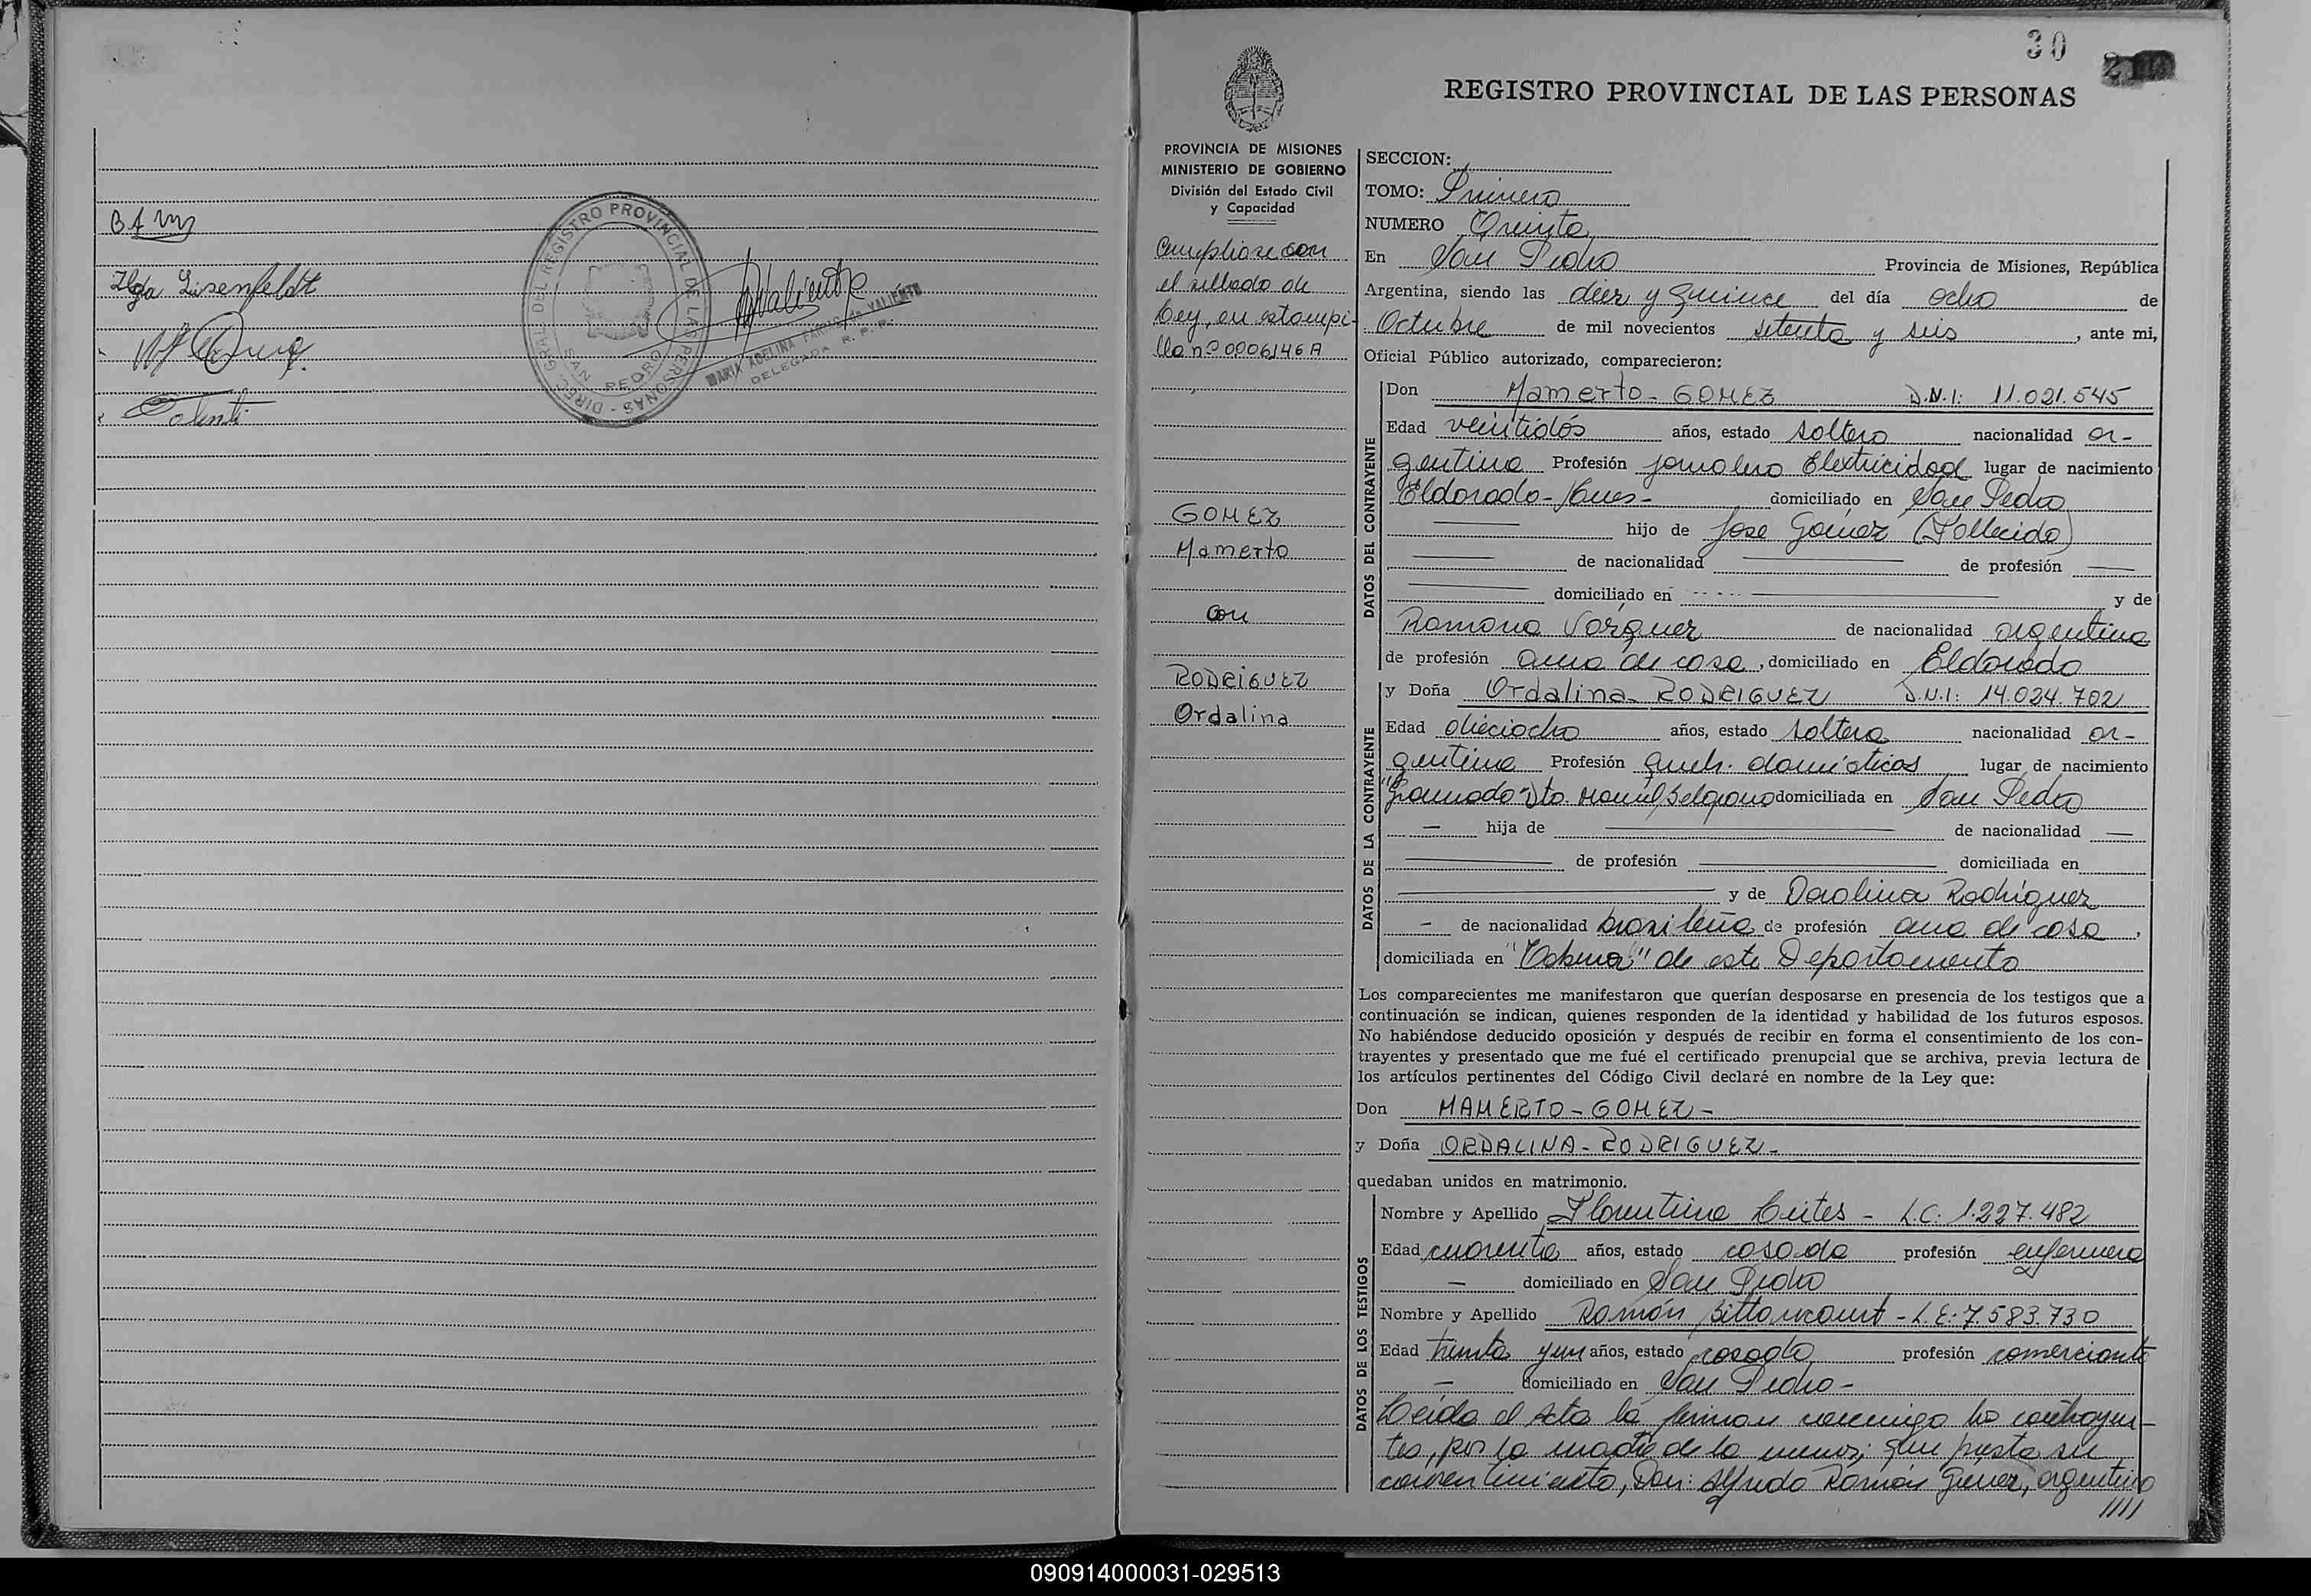 BAM
Ilga Lisenfeldt
DIREC. GRAL. DEL REGISTRO PROVINCIAL DE LAS PERSONAS -
SAN PEDRO
MARIA ADELINA FARIAS de VALIENTE
DELEGADA R. P. P.
30
REGISTRO PROVINCIAL DE LAS PERSONAS
PROVINCIA DE MISIONES
MINISTERIO DE GOBIERNO
División del Estado Civil
y Capacidad
Cumpliose con
el sellado de
Ley, en estampi-
lla nº 0006146A
GOMEZ
Mamerto
con
RODRIGUEZ
Ordalina
SECCION:
TOMO: Primero
NUMERO Quinta
En San Pedro Provincia de Misiones, República
Argentina, siendo las diez y quince del día ocho de
Octubre de mil novecientos setenta y seis, ante mi,
Oficial Público autorizado, comparecieron:
DATOS DEL CONTRAYENTE
Don Mamerto - GOMEZ D.N.I: 11.021.545
Edad veintidós años, estado soltero nacionalidad ar-
gentina Profesión jornalero Electricidad lugar de nacimiento
Eldorado - Mnes - domiciliado en San Pedro
hijo de Jose Gómez (Fallecido)
de nacionalidad de profesión
domiciliado en y de
Ramona Vázquez de nacionalidad argentina
de profesión ama de casa, domiciliado en Eldorado
DATOS DE LA CONTRAYENTE
y Doña Ordalina RODRIGUEZ D.N.I: 14.024.702
Edad dieciocho años, estado soltera nacionalidad ar-
gentina Profesión queh. domésticos lugar de nacimiento
"Gramado" Dto. Manuel Belgrano domiciliada en San Pedro
— hija de de nacionalidad —
de profesión domiciliada en
y de Darolina Rodríguez
— de nacionalidad brasileña de profesión ama de casa,
domiciliada en "Tobuna" de este Departamento
Los comparecientes me manifestaron que querían desposarse en presencia de los testigos que a
continuación se indican, quienes responden de la identidad y habilidad de los futuros esposos.
No habiéndose deducido oposición y después de recibir en forma el consentimiento de los con-
trayentes y presentado que me fué el certificado prenupcial que se archiva, previa lectura de
los artículos pertinentes del Código Civil declaré en nombre de la Ley que:
Don MAMERTO - GOMEZ -
y Doña ORDALINA - RODRIGUEZ -
quedaban unidos en matrimonio.
DATOS DE LOS TESTIGOS
Nombre y Apellido Florentina Leites - L.C: 1.227.482
Edad cuarenta años, estado casada profesión enfermera
— domiciliado en San Pedro
Nombre y Apellido Ramón Bittancourt - L.E: 7.583.730
Edad treinta y un años, estado casado profesión comerciante
— domiciliado en San Pedro -
Leída el Acta la firman conmigo los contrayen-
tes, por la madre de la menor, que presta su
consentimiento, Don: Alfredo Ramón , argentino
////
090914000031-029513